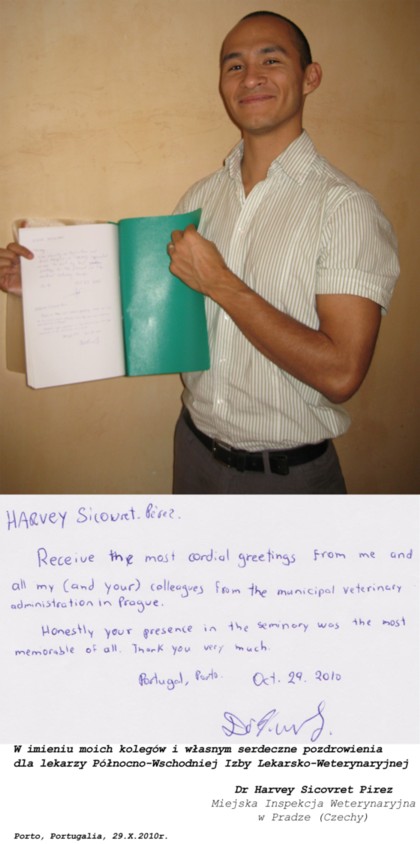 HARVEY Sicovret. Pérez.
Receive the most cordial greetings from me and
all my (and your) colleagues from the municipal veterinary
administration in Prague.
Honestly your presence in the seminary was the most
memorable of all. Thank you very much.
Portugal, Porto. Oct. 29. 2010
W imieniu moich kolegów i własnym serdeczne pozdrowienia
dla lekarzy Północno-Wschodniej Izby Lekarsko-Weterynaryjnej
Dr Harvey Sicovret Pirez
Miejska Inspekcja Weterynaryjna
w Pradze (Czechy)
Porto, Portugalia, 29.X.2010r.